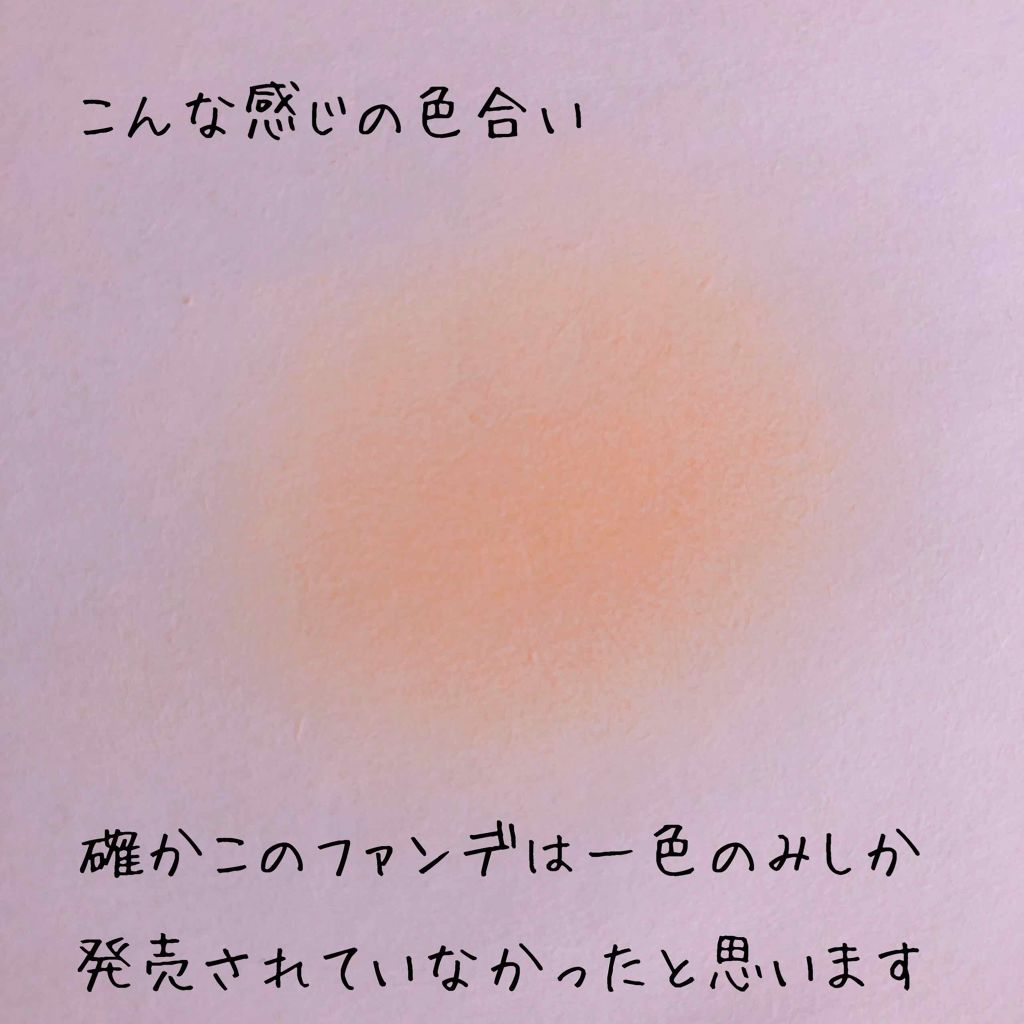 こんな感じの色合い
確かこのファンデは一色のみしか
発売されていなかったと思います